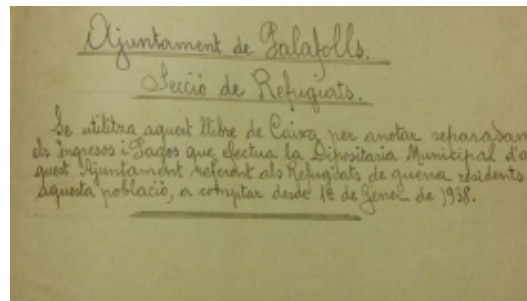 Ajuntament de Palafolls.
Secció de Refugiats.
Se utilitza aquest llibre de Caixa per anotar separadam
els Ingresos i Pagos que efectua la Dipositaria Municipal d'a
quest Ajuntament referent als Refugiats de guerra residents
aquesta població, a comptar desde 1er de Gener de 1938.